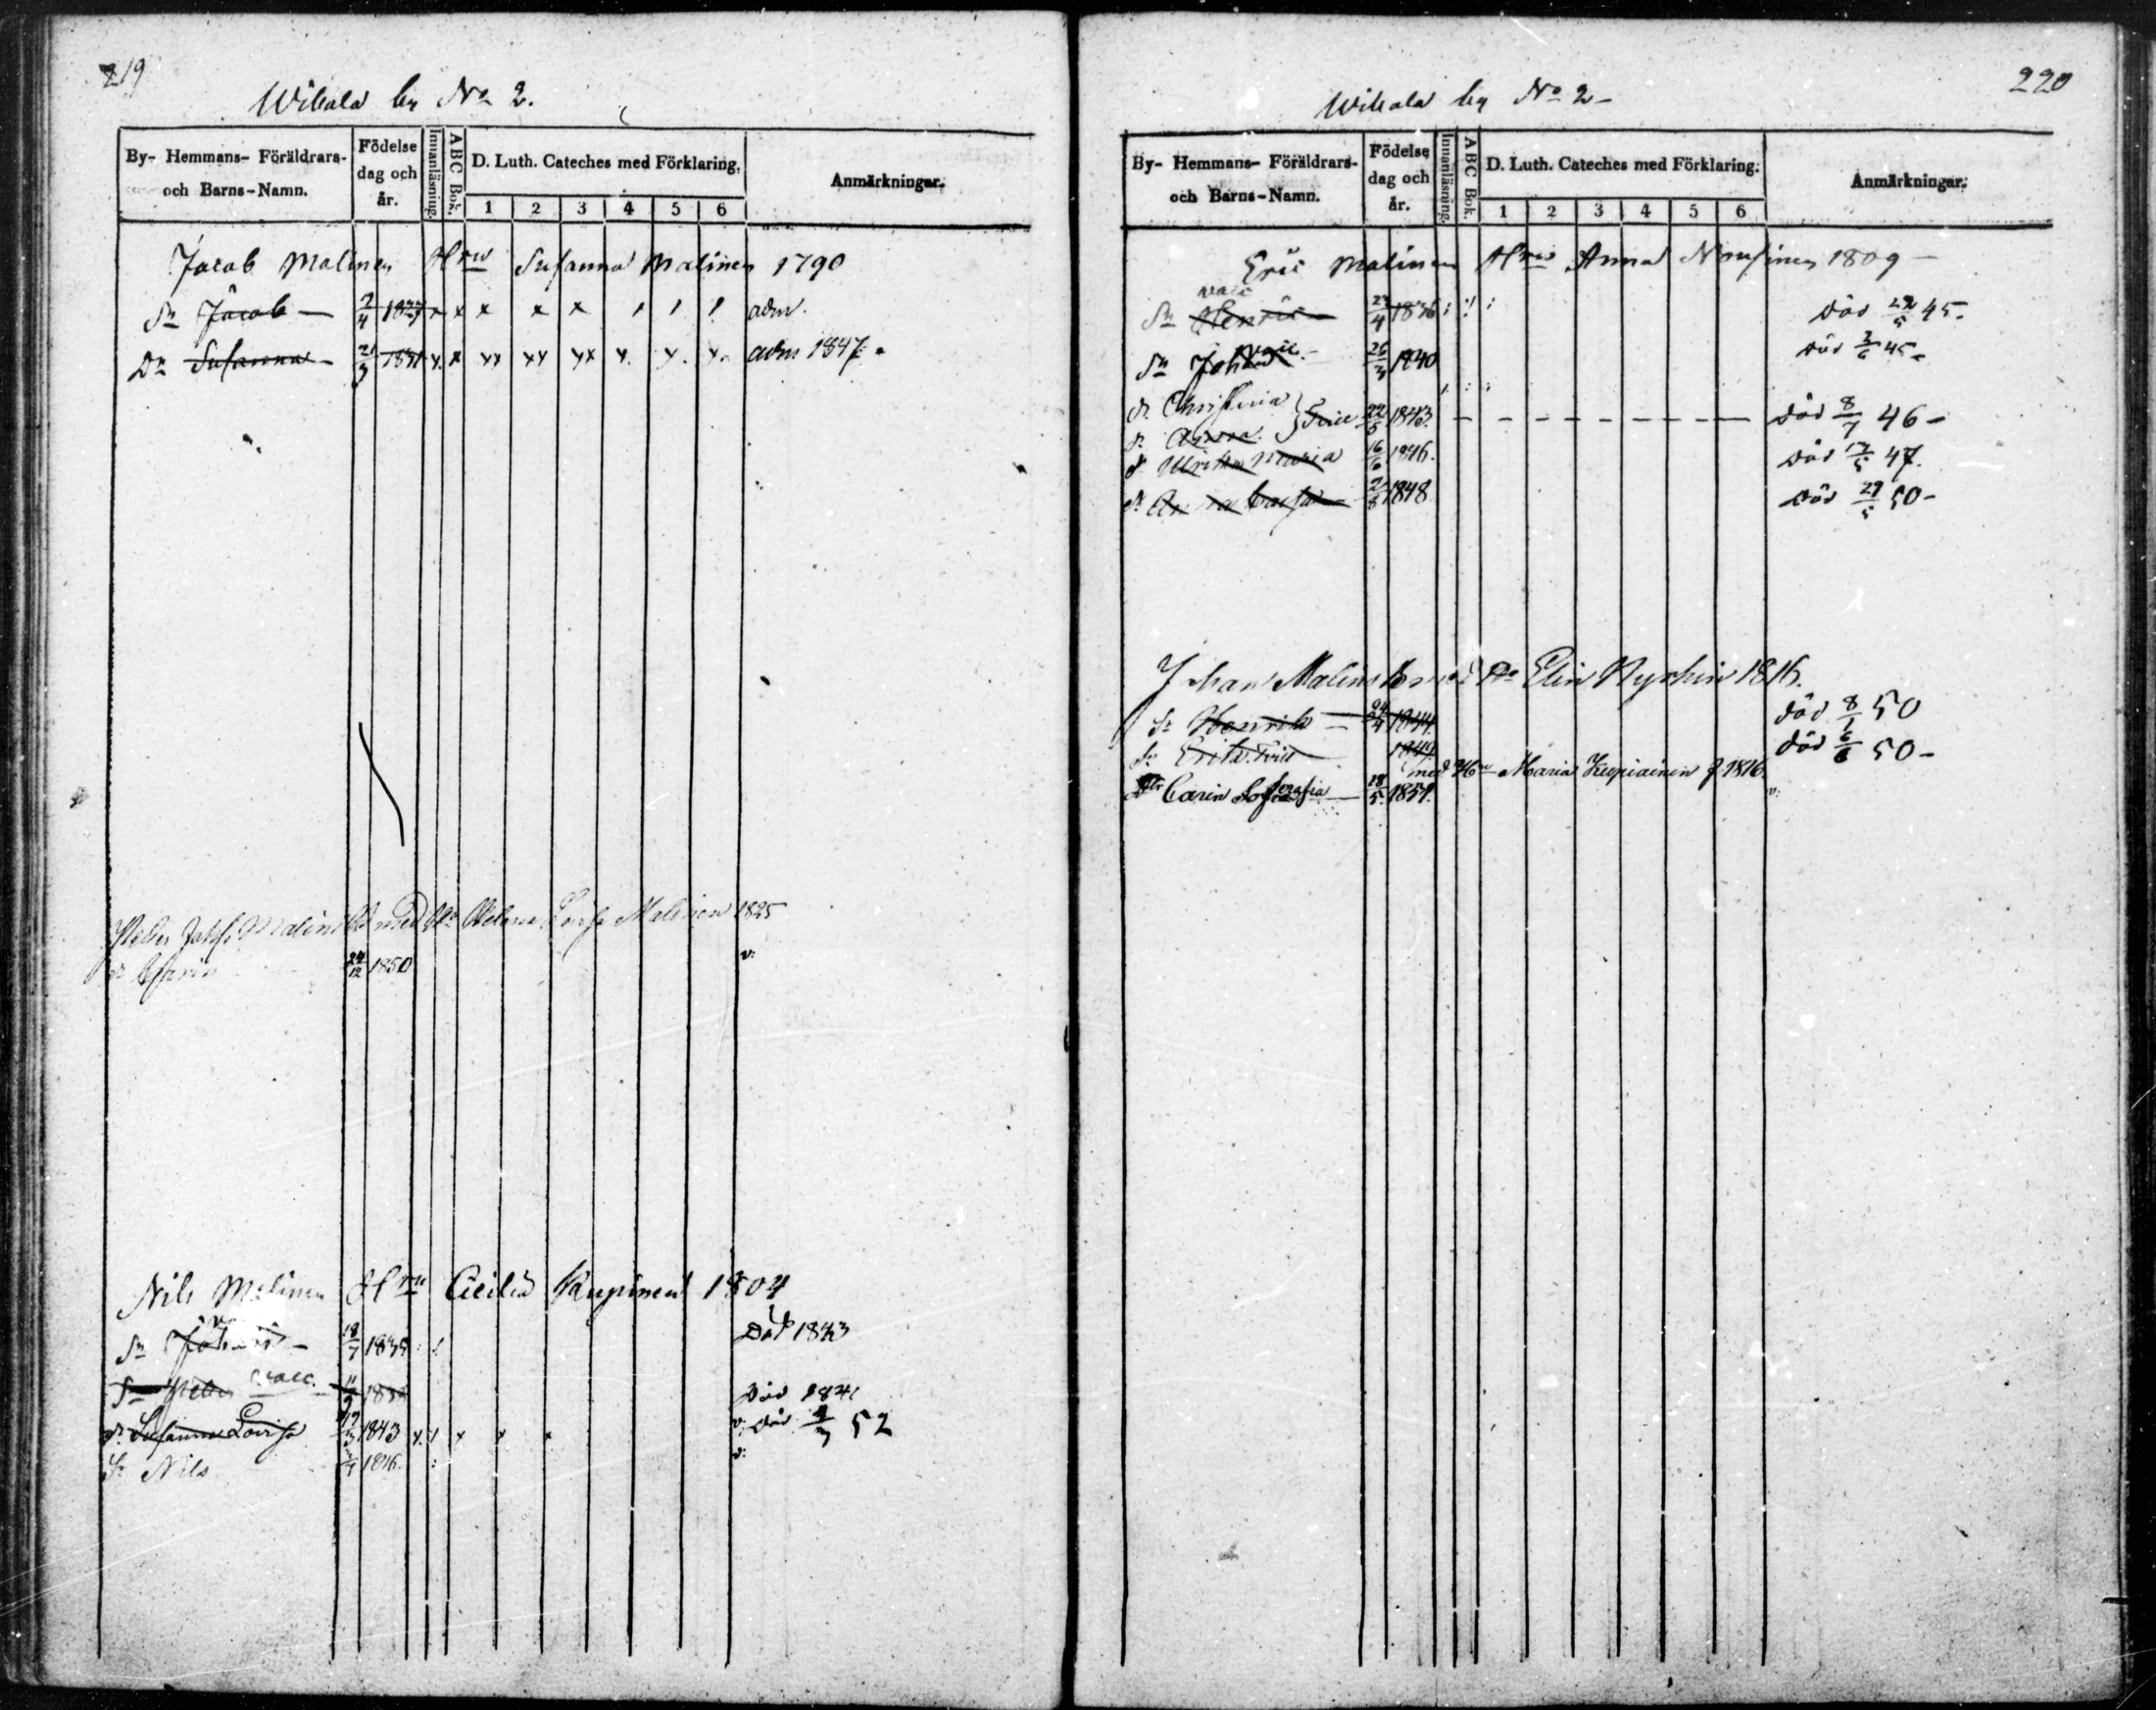 219
Wihala by No 2.
By- Hemmans- Föräldrars- och Barns-Namn. Födelse dag och år. Innanläsning. ABC Bok. D. Luth. Cateches med Förklaring. Anmärkningar.
1 2 3 4 5 6
Jacob Malinen Hru Susanna Malinen 1790
Sn Jacob — 2/4 1827 x x x x x adm.
Dr Susanna — 21/3 1831 x. x xx xx xx x. x. x. adm 1847.
Peter Malin med Helena Lovisa Malinen 1825
Carin 24/12 1850 v:
Nils Malinen Hru Cicilia Kupinen 1804
Sn Johan — 18/7 1835 Död 1843
Sn Peter vacc. 11/9 Död
dr Susanna Lovisa 19/3 1843 x x x x v: död 52
Sn Nils 1846. v:
220
Wihala by No 2 -
By- Hemmans- Föräldrars- och Barns-Namn. Födelse dag och år. Innanläsning. ABC Bok. D. Luth. Cateches med Förklaring. Anmärkningar.
1 2 3 4 5 6
Eric Malinen Hru Anna 1809 —
vacc
Sn Henric 23/4 1836 död 22/5 45.
Sn Johan vacc. — 26/3 1840 död 3/6 45 -
dr Christina
dr Anna } 22/5 1843. — död 8/7 46 -
dr Ulrika Maria 16/6 1846. död 17/5 47.
dr Caisa 2/8 1848 död 29/5 50 -
Johan Malin med Elin Ryhin 1816.
Sn Henrik — 24/4 1844. död 8/1 50
Sn Erik 1849 död 6/6 50 -
med Hu Maria Kupiainen f. 1816.
Dtr Carin Serafia — 18/5. 1851. v: